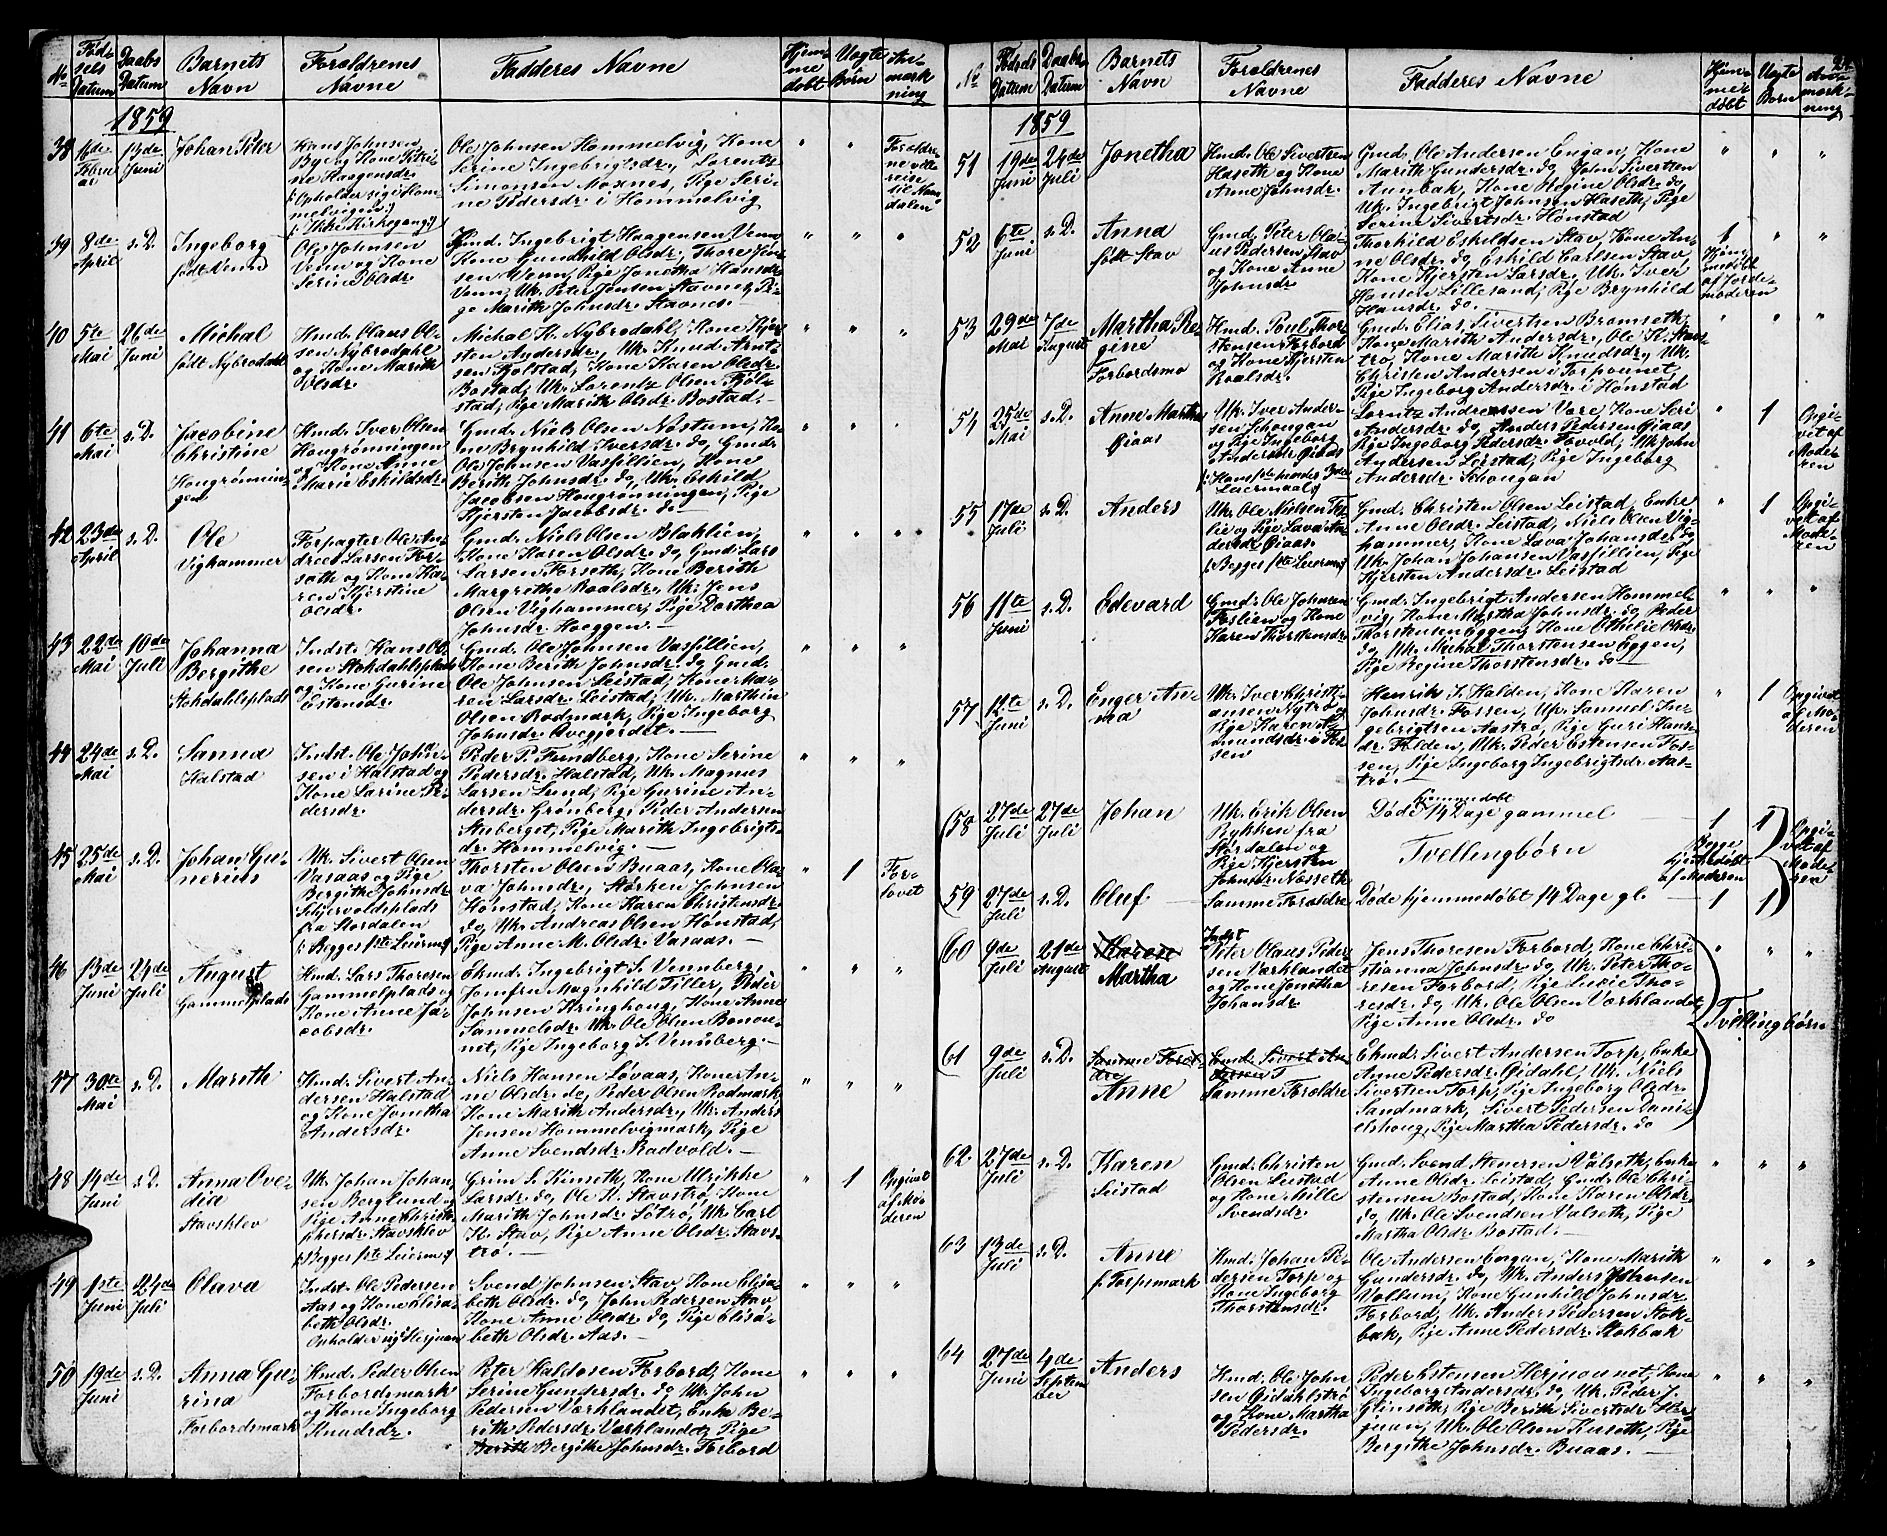 No
Fød-
sels
Datum
Daabs
Datum
Barnets
Navn
Forældrenes
Navne
Fadderes Navne
Hjem-
me
døbt
Uægte
Børn
An-
mærk
ning
1859
38
16de
Februar
13de
Juni
Johan Peter
Hans Johnsen
Bye og Kone Petri-
ne Haagensdr.
(: Opholder sig i Hom-
melvigen :)
(: Ikke Kirkegang :)
Ole Johnsen Hommelvig, Kone
Serine Ingebrigtsdr., Lorents
Simonsen Moxnes, Pige Seri-
ne Pedersdr. i Hommelvig
Forældre-
ne ville
reise
til Nam-
dalen
39
8de
April
s. D.
Ingeborg
født Venn
Ole Johnsen
Venn og Kone
Serine Olsdr.
Gmd. Ingebrigt Haagensen Venn,
Kone Gunhild Olsdr., Thore Jen-
sen Venn, Pige Jonetha Hansdr.
Venn, Uk. Peter Jensen Stavnes, Pi-
ge Marith Johnsdr. Stavnes.
40
5te
Mai
26de
Juni
Michal
født Nybrodahl
Hmd. Olaus Ol-
sen Nybrodahl
og Kone Marith
Olsdr.
Michal K. Nybrodahl, Kone Kjer-
sten Andersdr., Uk. Knud Arnt-
sen Fjolstad, Kone Karen Olsdr.
Bostad, Uk. Lorentz Olsen Fjøl-
stad, Pige Marith Olsdr. Bostad.
41
6te
Mai
s. D.
Jacobine
Christine
Hongrønnin-
gen
Hmd. Iver Olsen
Hongrønningen
og Kone Anne
Marie Eskildsdr.
Gmd. Niels Olsen Nøstum, Ko-
ne Brynhild Iversdr. do, Gmd.
Ole Johnsen Vasfillien, Kone
Berith Johnsdr. do, Uk. Eskild
Jacobsen Hongrønningen, Pige
Kjersten Jacobsdr. do
42
23de
April
s. D.
Ole
Vighammer
Forpagter Ole An-
dreas Larsen For-
seth og Kone Ka-
ren Kjerstine
Olsdr.
Gmd. Niels Olsen Blaklien,
Kone Karen Olsdr. do, Gmd. Lars
Larsen Forseth, Kone Berith
Margrethe Roalsdr., Uk. Jens
Olsen Vighammer, Pige Dorthea
Johnsdr. Hoeggen.
43
22de
Mai
10de
Juli
Johanna
Bergithe
Stokdahlsplads
Indst. Hans Ol-
sen Stokdahlsplads
og Kone Gurine
Estensdr.
Gmd. Ole Johnsen Vasfillien,
Kone Berith Johnsdr. do, Gmd.
Ole Johnsen Leistad, Kone Ma-
ren Larsdr. Leistad, Uk. Marthin
Olsen Rodmark, Pige Ingeborg
Johnsdr. Øvegjerdet.
44
24de
Mai
s. D.
Sanna
Halstad
Indst. Ole John-
sen i Halstad og
Kone Larine Pe-
dersdr.
Peder P. Sundberg, Kone Serine
Pedersdr. Halstad, Uk. Magnus
Larsen Lund, Pige Gurine An-
dersdr. Grønberg, Peder Andersen
Stuberget, Pige Marith Ingebrigts-
dr. Hommelvig.
45
25de
Mai
s. D.
Johan Gu-
nerius
Uk. Sivert Olsen
Vasaas og Pige
Bergithe Johnsdr.
Skjervoldsplads
fra Stordalen
(: Begges 1ste Leierm :)
Thorsten Olsen Buaas, Kone Ola-
va Johnsdr., Størker Johnsen
Hønstad, Kone Karen Christensdr.
do, Uk. Andreas Olsen Hønstad,
Pige Anne M. Olsdr. Vasaas.
1
For-
lovet
46
13de
Juni
24de
Juli
August
Gammelplads
Hmd. Lars Thoresen
Gammelplads og
Kone Anne Ja-
cobsdr.
Ekmd. Ingebrigt S. Vennberg,
Jomfru Magnhild Tiller, Peder
Johnsen Kringhoug, Kone Anne
Samuelsdr. Uk. Ole Olsen Bonou-
net, Pige Ingeborg S. Vennberg.
47
30te
Mai
s. D.
Marith
Hmd. Sivert An-
dersen Halstad
og Kone Jonetha
Andersdr.
Niels Hansen Løvaas, Kone An-
ne Olsdr. do, Peder Olsen Rodmark,
Kone Marith Andersdr., Uk. Anders
Jensen Hommelvigmark, Pige
Anne Svendsdr. Radvold.
48
14de
Juni
s. D.
Anna Ove-
dia
Stavsklev
Uk. Johan Johan-
sen Berglund og
Pige Anne Christo-
phersdr. Stavsklev
(: Begges 1ste Leierm :)
Grim S. Kinseth, Kone Ulrikke
Larsdr. do, Ole K. Stavstrø, Kone
Marith Johnsdr. Sotrø, Uk. Carl
K. Stav, Pige Anne Olsdr. Stavs-
trø.
1
Opgivet
af Mo-
deren
49
1ste
Juni
24de
Juli
Olava
Indst. Ole Pedersen
Aas og Kone Elisa-
beth Olsdr.
Opholder sig i Herjuan
Svend Johnsen Stav, Kone Elisa-
beth Olsdr. do, John Pedersen Stav,
Kone Anne Olsdr. do, Pige Elisa-
beth Olsdr. Aas.
50
19de
Juni
s. D.
Anna Gu-
rina
Forbordsmark
Hmd. Peder Olsen
Forbordsmark
og Kone Ingeborg
Knudsdr.
Peter Haldosen Forbord, Kone
Serine Gundersdr. do, Uk. John
Pedersen Værklandet, Enke Be-
rith Pedersdr. Værklandet, Pige
Berith Bergithe Johnsdr. Forbord
No
Fødsels
Datum
Daabs
Datum
Barnets
Navn
Forældrenes
Navne
Fadderes Navne
Hjem-
me
døbt
Uægte
Børn
Anmærk-
ning
1859
51
19de
Juni
24de
Juli
Jonetha
Hmd. Ole Sivertsen
Haseth og Kone
Anne Johnsdr.
Gmd. Ole Andersen Engan, Kone
Marith Gundersdr. do, John Sivertsen
Aunbak, Kone Regine Olsdr. do,
Uk. Ingebrigt Johnsen Haseth, Pige
Serine Sivertsdr. Hønstad
52
6te
Juni
s. D.
Anna
født Stav
Gmd. Peter Ola-
us Pedersen Stav
og Kone Anne
Johnsdr.
Thorkild Eskildsen Stav, Kone An-
ne Olsdr. do, Eskild Carlsen Stav,
Kone Kjersten Larsdr., Uk. Iver
Hansen Lillesand, Pige Brynhild
Hansdr. do.
1
Hjem-
medøbt
af Jorde-
moderen
53
29de
Mai
7de
August
Martha Re-
gine
Forbordsmo
Hmd. Poul Thor-
stensen Forbord
og Kone Kjersten
Roalsdr.
Gmd. Elias Sivertsen Bromseth,
Kone Marith Andersdr., Ole K. Stavs-
trø, Kone Marith Knudsdr., Uk.
Christen Andersen i Torpounet,
Pige Ingeborg Andersdr. i Hønstad
54
25de
Mai
s. D.
Anne Martha
Qiaas
Uk. Iver Ander-
sen Schongan
og Pige Ingeborg
Andersdr. Qiaas
(: Hans 1ste hendes 3die
Leiermaal :)
Lorntz Andreassen Vore, Kone Seri
Andersdr. do, Anders Pedersen Qiaas,
Pige Ingeborg Pedersdr. Fovold, Uk. John
Andersen Leistad, Pige Ingeborg
Andersdr. Schongan
1
Opgi-
vet af
Mode-
ren
55
17de
Juli
s. D.
Anders
Uk. Ole Nielsen Fæ-
lie og Pige Lava An-
dersdr. Qiaas.
(: Begges 1ste Leierm :)
Gmd. Christen Olsen Leistad, Enke
Anne Olsdr. Leistad, Niels Olsen Vig-
hammer, Kone Lava Johansdr. do,
Uk. Johan Johansen Vasfillien, Pige
Kjersten Andersdr. Leistad
1
Opgi-
vet af
Mode-
ren
56
11te
Juni
s. D.
Edevard
Gmd. Ole Johnsen
Foslien og Kone
Karen Thorstensdr.
Gmd. Ingebrigt Andersen Hommel-
vig, Kone Martha Johnsdr. do, Peder
Thorstensen Eggen, Kone Othelie Olsdr.
do, Uk. Michal Thorstensen Eggen,
Pige Regine Thorstensdr. do
57
12te
Juni
s. D.
Enger An-
na
Uk. Iver Christi-
ansen Nytrø og
Pige Karen A-
mundsdr. i Fos-
sen
Henrik S. Halden, Kone Karen
Johnsdr. Fossen, Uk. Samuel In-
gebrigtsen Aastrø, Pige Guri Hans-
dr. Folden, Uk. Peder Estensen Fos-
sen, Pige Ingeborg Ingebrigtsdr. Aas-
trø.
1
Opgivet
af Mo-
deren
58
27de
Juli
27de
Juli
Johan
Uk. Erik Olsen
Rykken fra
Stordalen og
Pige Kjersten
Johnsdr. Næsseth
Døde hjemmedøbt 14 Dage gammel
Tvillingbørn
1
Begge
hjemmedøbt
af Moderen
1
Opgi-
vet af
Mode-
ren
59
27de
Juli
s. D.
Oluf
Samme Forældre
Døde hjemmedøbt 14 Dage gl.
1
1
60
9de
Juli
21de
August
Karen
Martha
Indst.
Peter Olaus Peder-
sen Værklandet
og Kone Jonetha
Johansdr
Jens Thoresen Forbord, Kone Chri-
stianna Johnsdr. do, Uk. Peter Tho-
resen Forbord, Pige Lucie Tho-
resdr. do, Uk. Ole Olsen Værklandet,
Pige Anne Olsdr. do
Tvillingbørn
61
9de
Juli
s. D.
Samme Foræl-
dre
Anne
Gmd. Sivert An-
dersen T
Samme Forældre
Ekmd. Sivert Andersen Torp, Enke
Anne Pedersdr. Qidahl, Uk. Niels
Sivertsen Torp, Pige Ingeborg Olsdr.
Sandmark, Sivert Pedersen Dani-
elshoug, Pige Martha Pedersdr. do
62
27de
Juli
s. D.
Karen
Leistad
Gmd. Christen
Olsen Leistad
og Kone Mille
Svendsdr.
Gmd. Svend Stenersen Valseth, Enke
Anne Olsdr. Leistad, Gmd. Ole Chri-
stensen Bostad, Kone Karen Olsdr.
do, Uk. Ole Svendsen Valseth, Pige
Martha Olsdr. Bostad.
63
13de
Juli
s. D.
Anne
f. Torpsmark
Hmd. Johan Pe-
dersen Torp og
Kone Ingeborg
Thorstensdr.
Ole Andersen Engan, Kone Marith
Gundersdr. do, Uk. Anders Johnsen
Voltum, Kone Gunhild Johnsdr.
Forbord, Uk. Anders Pedersen Stok-
bak, Pige Anne Pedersdr. Stokbak
64
27de
Juni
4de
Septem-
ber
Anders
Hmd. Ole John-
sen Qidahlstrø
og Kone Martha
Pedersdr.
Peder Estensen Herjuaunet, Kone
Ingeborg Andersdr. do, Uk. Peder J.
Glinseth, Pige Berith Sivertsdr. Her-
juan, Uk. Ole Olsen Kuseth, Pige
Bergithe Johnsdr. Buaas.